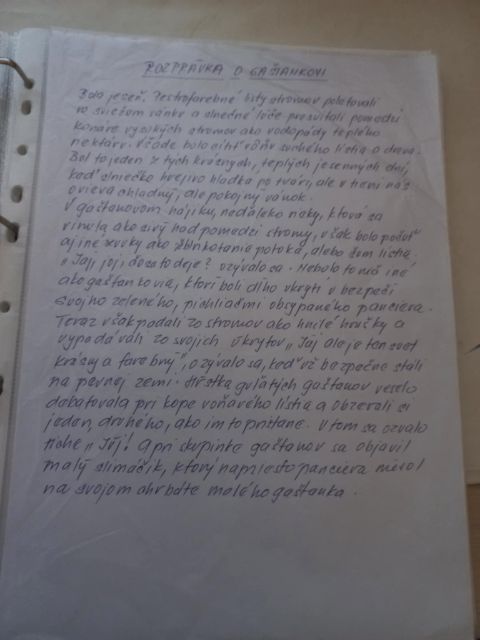 ROZPRÁVKA O GAŠTANKOVI
Bola jeseň. Pestrofarebné listy stromov poletovali
vo sviežom vánku a slnečné lúče presvitali pomedzi
konáre vysokých stromov ako vodopády teplého
nektáru. Všade bolo cítiť vôňu suchého lístia a dreva.
Bol to jeden z tých krásnych, teplých jesenných dní,
keď slniečko hrejivo hladká po tvári, ale v tieni nás
ovieva chladný, ale pokojný vánok.
V gaštanovom hájiku, neďaleko rieky, ktorá sa
vinula ako sivý had pomedzi stromy, však bolo počuť
aj iné zvuky ako žblnkotanie potoka, alebo šum lístia.
„Jaj, joj, čo sa to deje? ozývalo sa. Nebolo to nič iné
ako gaštankovia, ktorí boli dlho ukrytí v bezpečí
svojho zeleného, pichliačmi obsypaného panciera.
Teraz však padali zo stromov ako hnilé hrušky a
vypadávali zo svojich úkrytov „Jáj ale je ten svet
krásny a farebný", ozývalo sa, keď už bezpečne stáli
na pevnej zemi. Hŕstka guľatých gaštanov veselo
debatovala pri kope voňavého lístia a obzerali si
jeden, druhého, ako im to pristane. V tom sa ozvalo
tiché „ Jój! A pri skupinke gaštanov sa objavil
malý slimáčik, ktorý namiesto panciera niesol
na svojom chrbáte malého gaštanka.